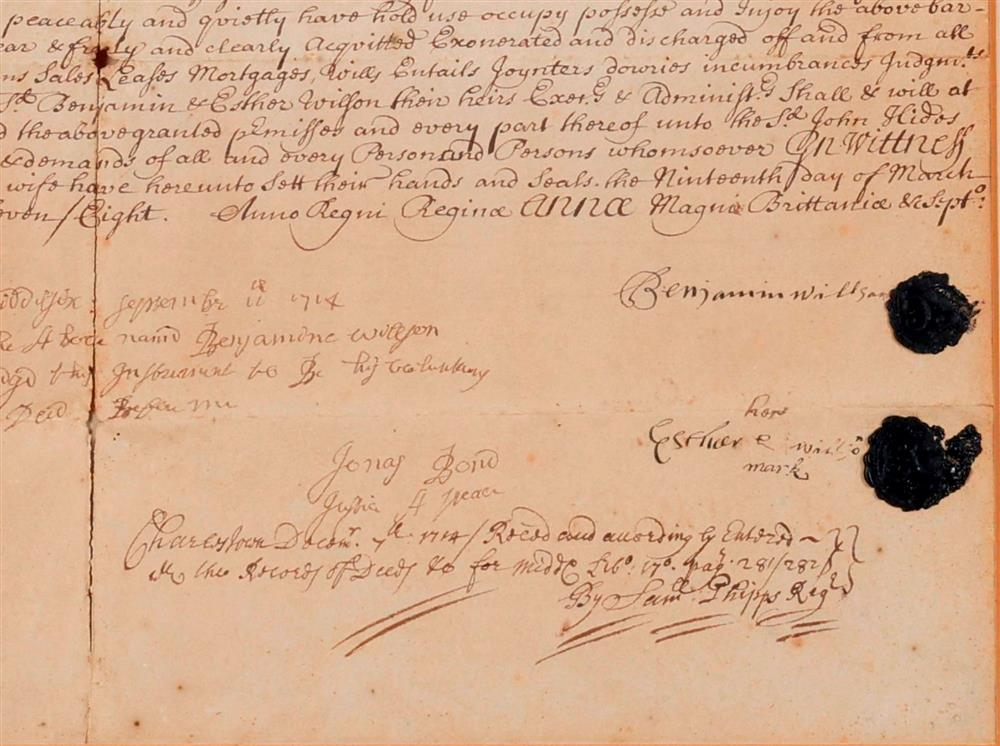 peaceably and quietly have hold use occupy possesse and Injoy the above bar-
ear & freely and clearly Acquitted Exonerated and discharged off and from all
ns Sales Leases Mortgages, Wills Entails Joynters dowries incumbrances Judgm.ts
Sd. Benjamin & Esther Wilson their heirs Exer.s & Administ.s Shall & will at
d the above granted pmisses and every part thereof unto the Sd. John Hides
& demands of all and every Person and Persons whomsoever In Wittness
wife have hereunto Sett their hands and Seals the Ninteenth day of March
even / Eight. Anno Regni Reginæ Annæ Magnæ Brittaniæ & Sept.o
September 11 1714
Benjamin willson
Above namd Benjamine willson
this Instrument to Be his voluntary
Deed Before me
her
Esther e wills
mark
Jonas Bond
Justice of peace
Charlestown Decemr. 7th. 1714 / Reced and accordingly Entered
the Records of Deeds &c for Midd. Lib.o 17.o pag. 281/282
By Saml. Phipps Reg.r